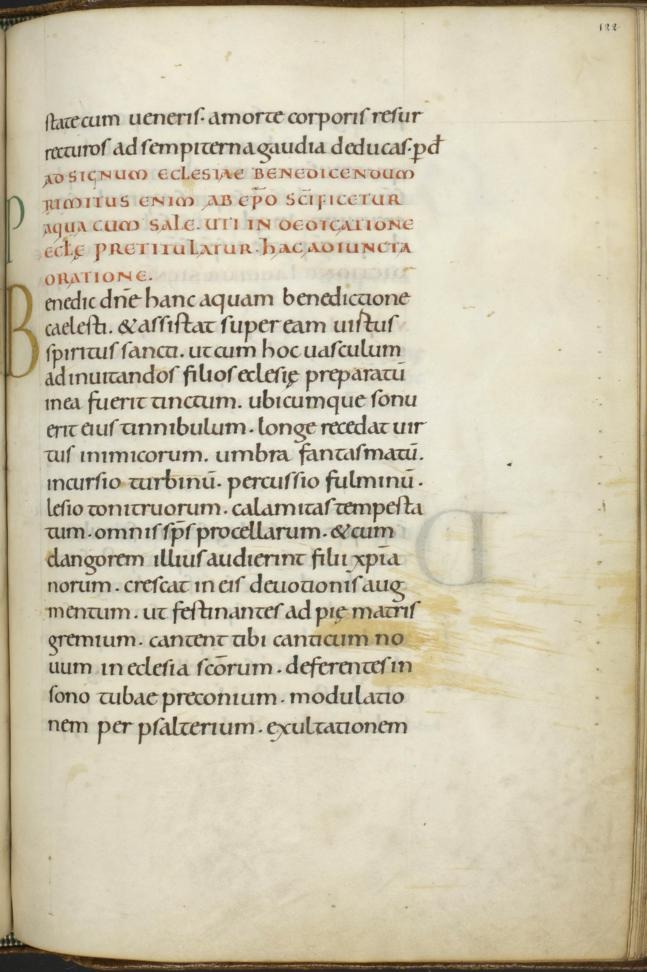 122
state cum ueneris· a morte corporis resur
recturos ad sempiterna gaudia deducas· pd̄
AD SIGNUM ECLESIAE BENEDICENDUM
PRIMITUS ENIM AB EPO SCIFICETUR
AQUA CUM SALE· UTI IN DEDICATIONE
ECLĘ PRETITULATUR· HAC ADIUNCTA
ORATIONE.
Benedic dn̄e hanc aquam benedictione
caelesti. & assistat super eam uirtus
spiritus sancti. ut cum hoc uasculum
ad inuitandos filios eclesię preparatū
in ea fuerit tinctum. ubicumque sonu
erit eius tinnibulum· longe recedat uir
tus inimicorum. umbra fantasmatū.
incursio turbinū· percussio fulminū·
lesio tonitruorum· calamitas tempesta
tum· omnis sp̄s procellarum· & cum
clangorem illius audierint filii xp̄ia
norum· crescat in eis deuotionis aug
mentum. ut festinantes ad pię matris
gremium· cantent tibi canticum no
uum in eclesia scōrum· deferentes in
sono tubae preconium· modulatio
nem per psalterium· exultationem